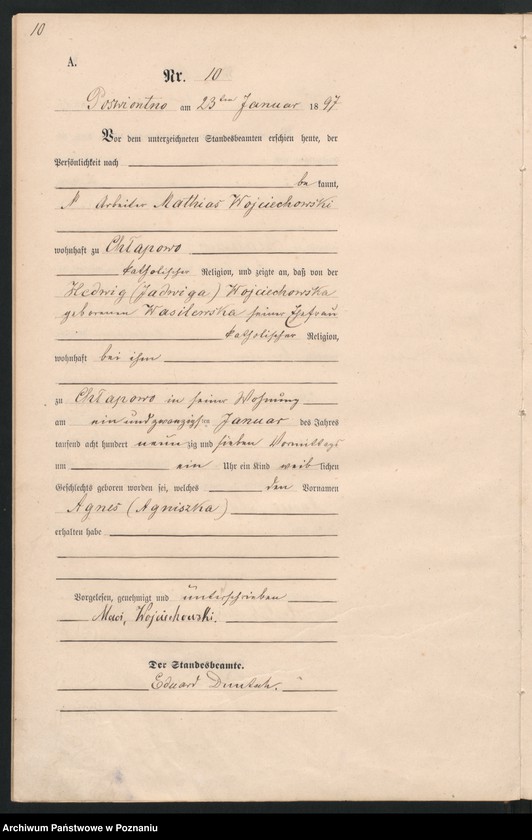 10
A.
Nr. 10
am 23ten Januar 1897
Vor dem unterzeichneten Standesbeamten erschien heute, der
Persönlichkeit nach
be kannt,
Arbeiter Mathias Wojciechowski
wohnhaft zu Chłapowo
katholischer Religion, und zeigte an, daß von der
Hedwig (Jadwiga) Wojciechowska
geborenen Wasilewska seiner Ehefrau
katholischer Religion,
wohnhaft bei ihm
zu Chłapowo in seiner Wohnung
am ein und zwanzigsten Januar des Jahres
tausend acht hundert neun zig und sieben Vormittags
um ein Uhr ein Kind weib lichen
Geschlechts geboren worden sei, welches den Vornamen
Agnes (Agniszka)
erhalten habe
Vorgelesen, genehmigt und unterschrieben
Wojciechowski.
Der Standesbeamte.
Eduard
Archiwum Państwowe w Poznaniu